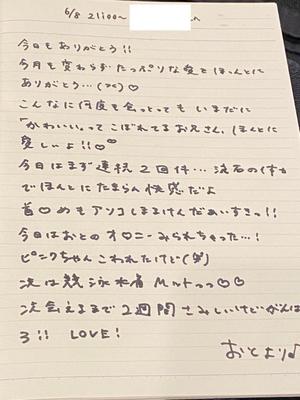 6/8 21:00～
今日もありがとう!!
今月も変わらずたっぷりな愛とほんとに
ありがとう…(><)♡
こんなに何度も会っとっても いまだに
「かわいい」ってこぼれてるお兄さん、ほんとに
愛しいよ!!♡♡
今日はまず連続2回件… 流石の
でほんとにたまらん快感だよ
首♡めもアソコしまるけんだぁいすきっ!!
今日はおとのオ♡ニーみられちゃった…!
ピンクちゃんこわれたけど(笑)
次は競泳水着 Mットっっ♡♡
次会えるまで2週間さみしいけどがんば
ろ!! LOVE!
おとより♪